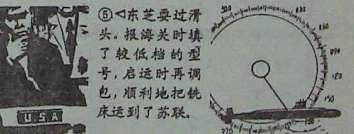 ⑤◁东芝耍过滑
头。报海关时填
了较低档的型
号，启运时再调
包，顺利地把铣
床运到了苏联。
USA